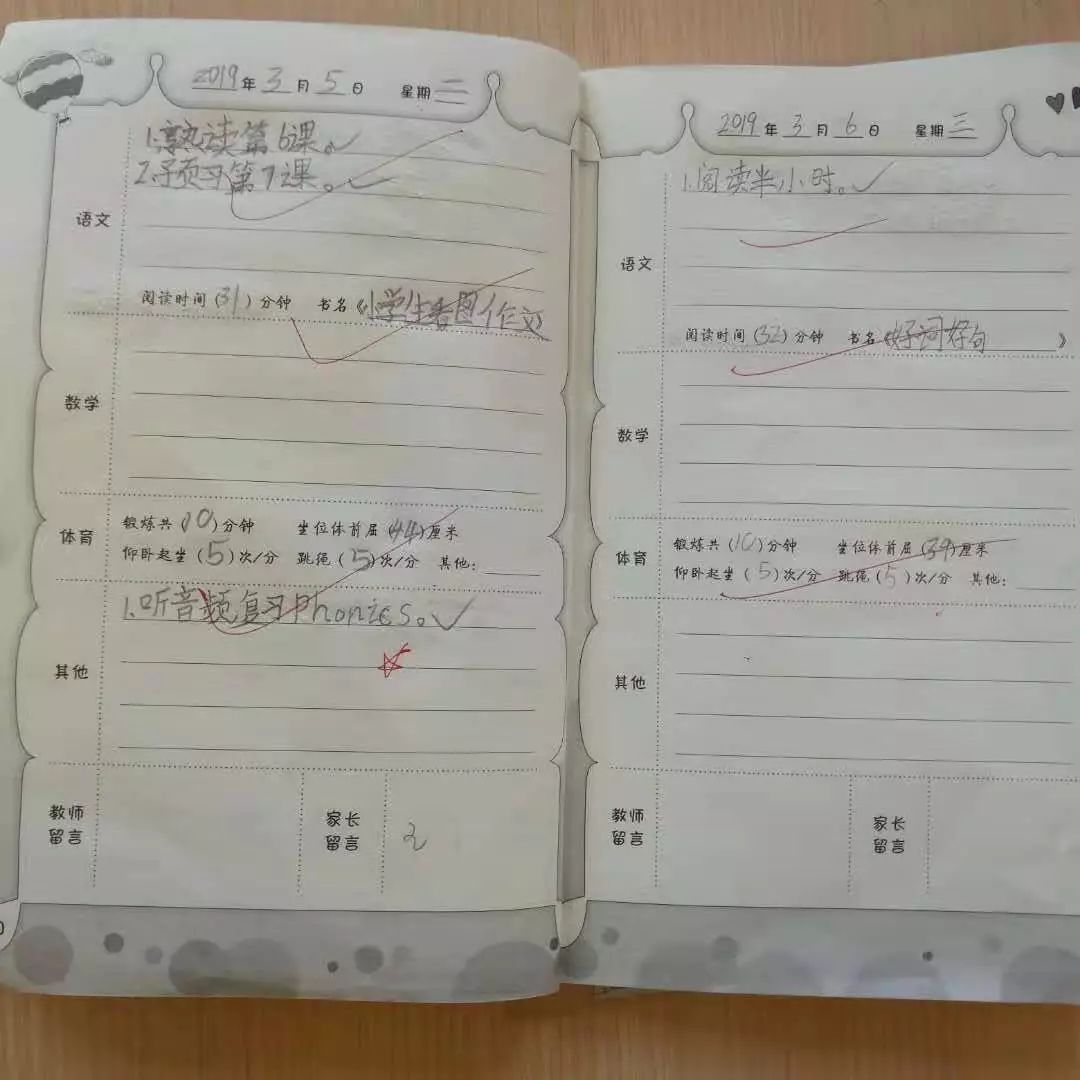 2019年3月5日 星期二
1.熟读第6课。
2.预习第7课。
语文
阅读时间(31)分钟 书名《小学生看图作文》
数学
体育
锻炼共(10)分钟 坐位体前屈(44)厘米
仰卧起坐(5)次/分 跳绳(5)次/分 其他:
1.听音频复习Phonics。
其他
教师留言
家长留言
2019年3月6日 星期三
1.阅读半小时。
语文
阅读时间(32)分钟 书名《好词好句》
数学
体育
锻炼共(10)分钟 坐位体前屈(39)厘米
仰卧起坐(5)次/分 跳绳(5)次/分 其他:
其他
教师留言
家长留言